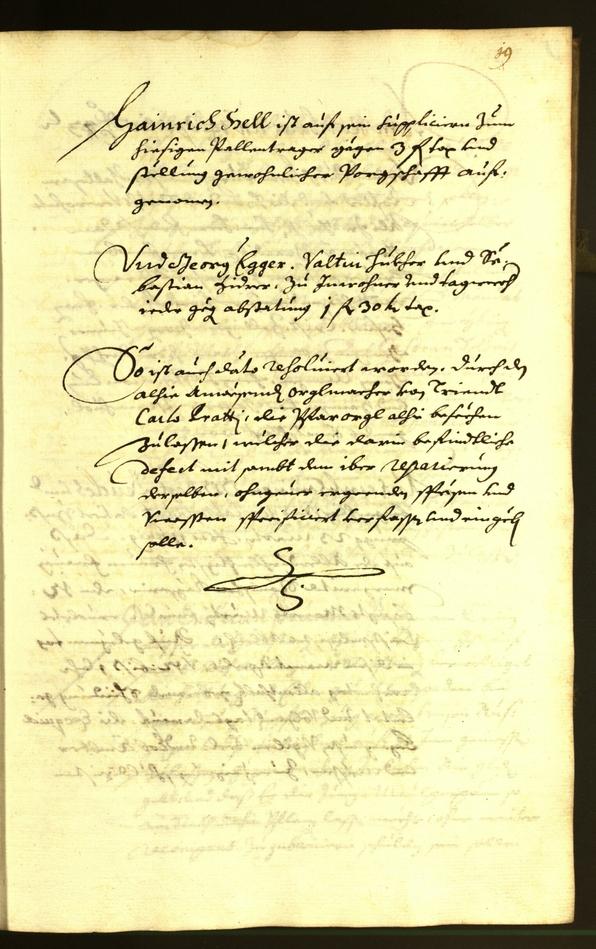 19
Hainrich Hell ist auf sein Supplicirn zum
hiesigen Pallentrager gegen 3 f tax und
stellung gewohnlicher Porgschafft auf-
genomen.
Und Georg Egger. Valtin Huber und Se-
bastian Zidrer. zu Inwohner und tagwerch
iede geg abstatung 1 f 30 kr tax.
So ist auch dato resoluiert worden. durch den
alhie Anwesend Orglmacher von Triendt
Carlo Pratti, die Pfarorgl alhie besechen
zulassen, welcher die darin befindtliche
defect mit sambt den iber reparierung
derselben, ohngeuer ergeenden spesen und
specificiert verfassen und eingeb
solle.